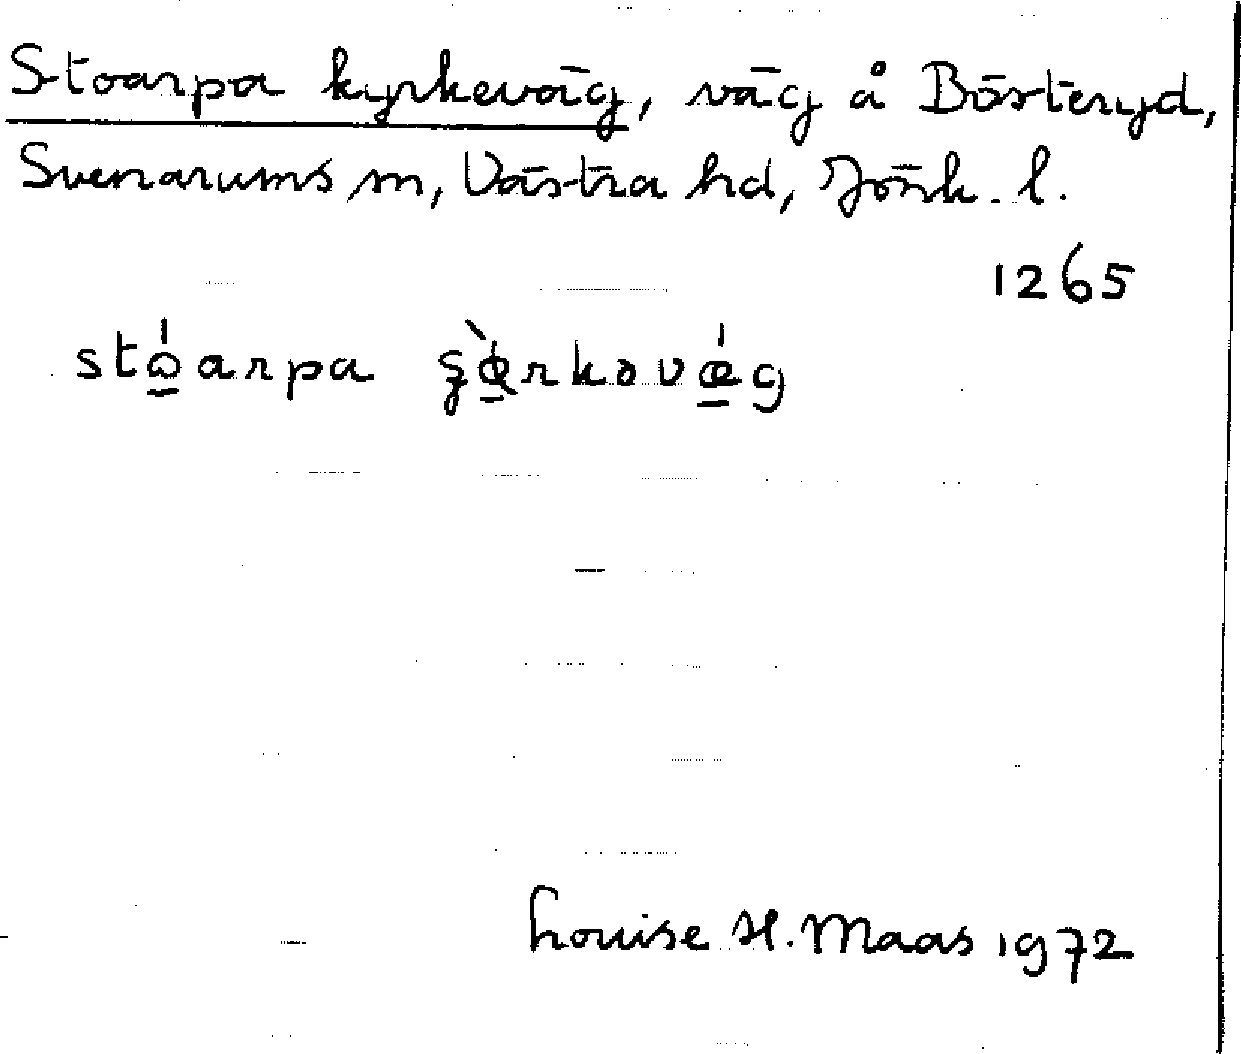 Stoarpa kyrkeväg, väg å Bösteryd,
Svenarums sn, Västra hd, Jönk. l.
1265
stó̲arpa ʂø̲̀rkəvǽ̲g
Louise H. Maas 1972